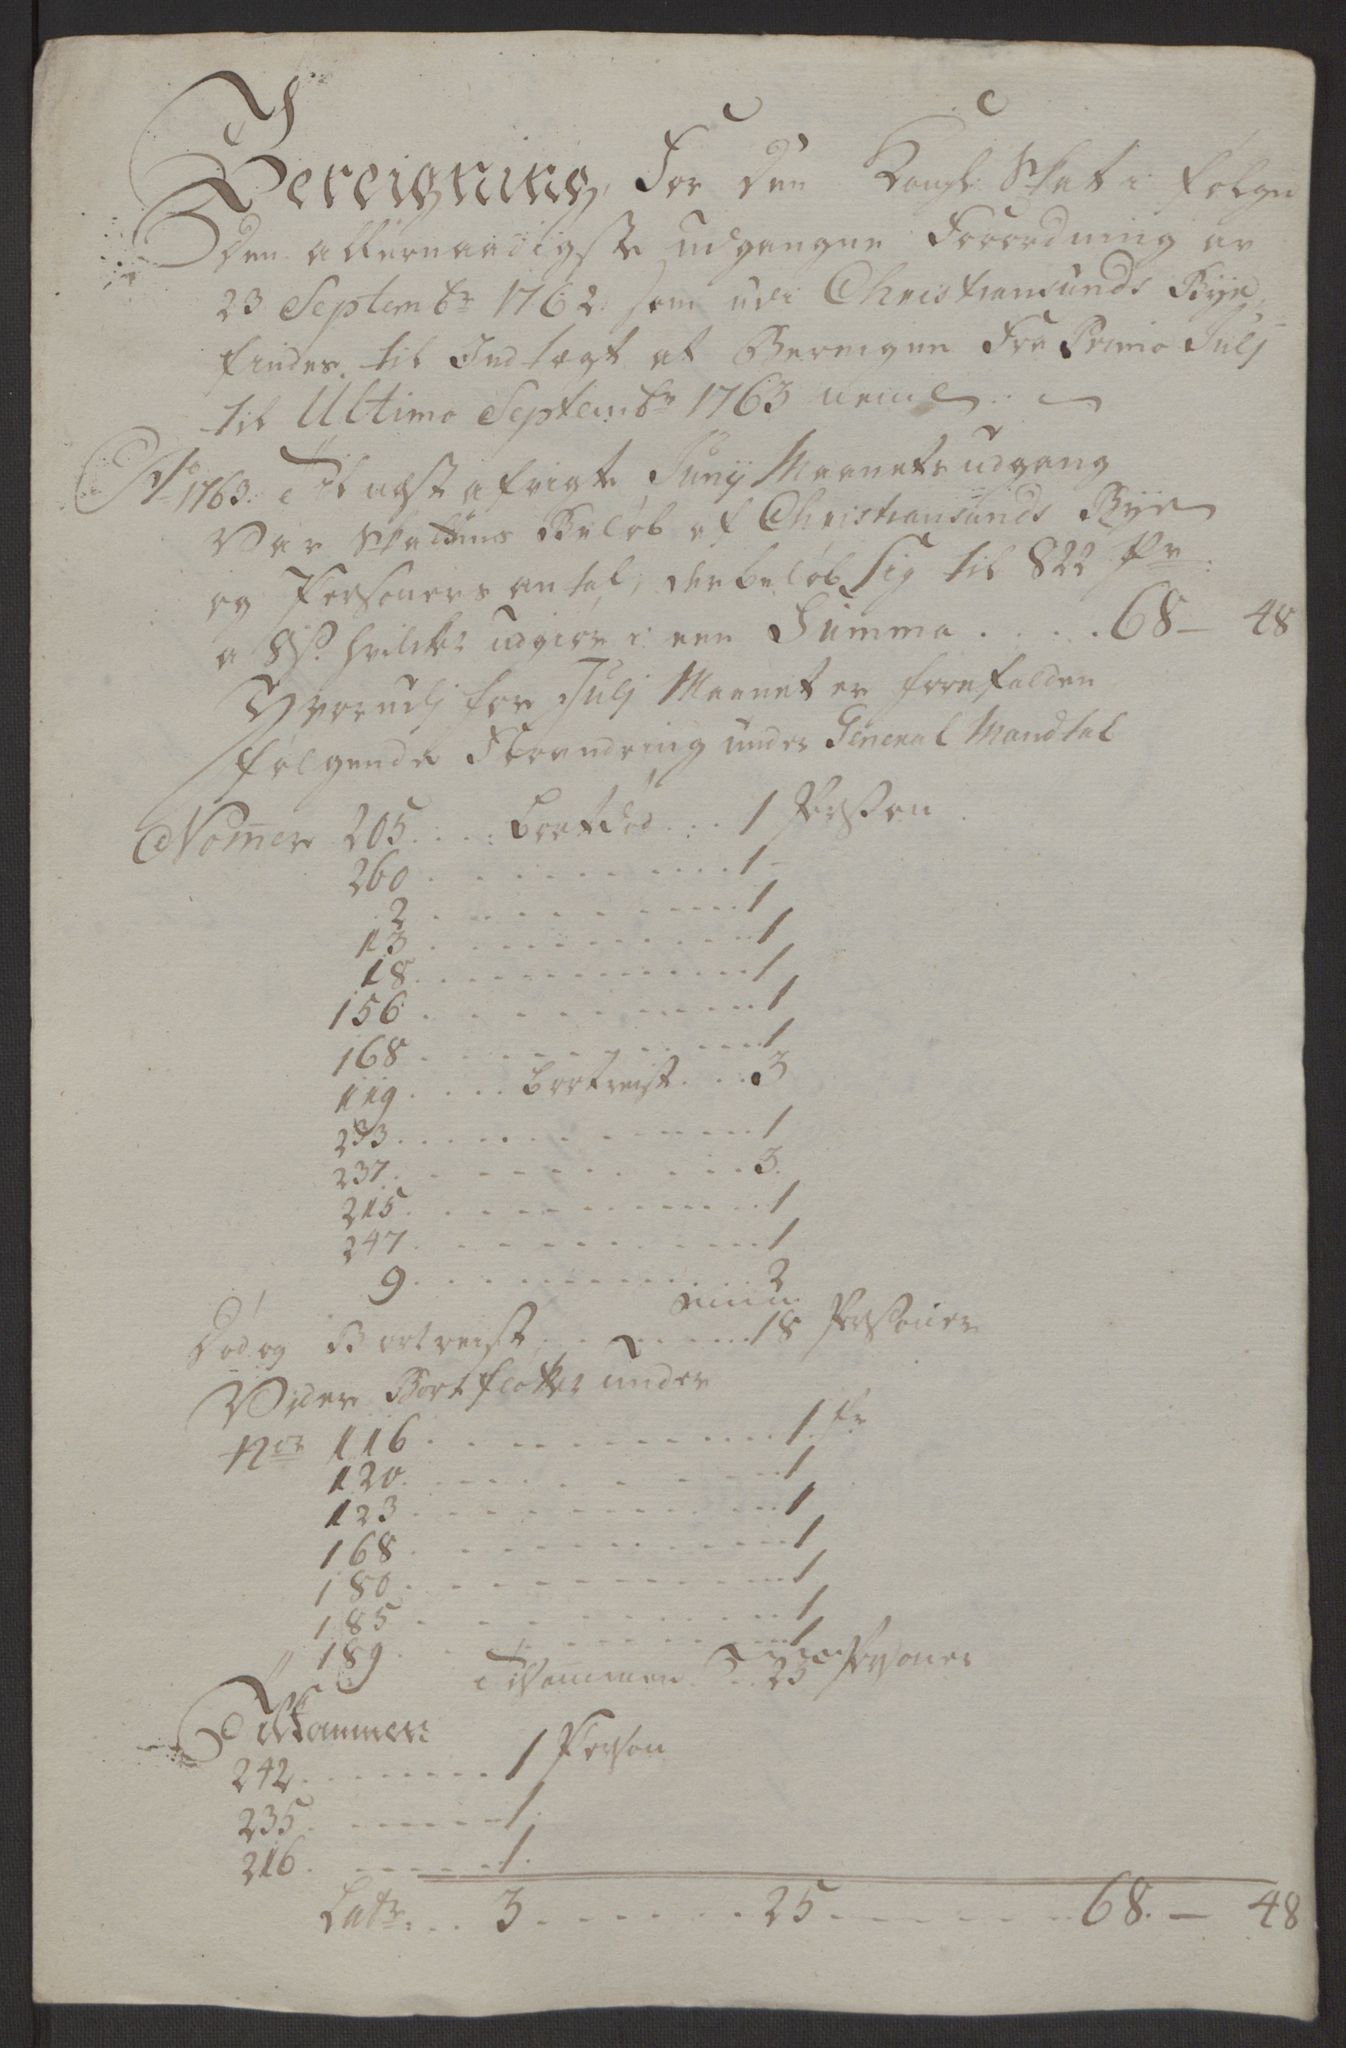 Bereigning, For den Kongl: Skat i følge
den allernaadigste udgangne Forordning av
23 Septembr 1762 som udi Christiansunds Bÿe
findes til Indtægt at Bereigne Fra Primo Julj
til Ultimo Septembr 1763 neml
Ao 1763. Til næst afvigte Junij Maanets udgang
Var Skattens Beløb af Christiansunds Bÿe
og Personers antal, der beløb sig til 822 Pr:
a 8 s. hvilket udgiør i een Summa . . . . . 68 — 48
Hvorudj for Julj Maanet er forefalden
følgende Forandring under General Mandtal
Nomer 205 . . . . bortdød . . . 1 Person
260 . . . . . . 1 -
2 . . . . . . 1
13 . . . . . . 1
18 . . . . . . 1
156 . . . . . . 1
168 . . . . . . 1
119 . . . . bortreist . . . 3
233 . . . . . . 1
237 . . . . . . 3
215 . . . . . . 1
247 . . . . . . 1
9 . . . . . . 2
Død og Bortreist . . . . . . 18 Personer
Vider Bortfløttet under
Nor 116 . . . . . . 1 Pr
120 . . . . . . 1
123 . . . . . . 1
168 . . . . . . 1
180 . . . . . . 1
185 . . . . . . 1
189 . . . . . . 1
Tilsammen . . 25 Personer
Tilkommen
242 . . . . . . 1 Person
235 . . . . . . 1
216 . . . . . . 1
Latr: . . . 3 . . . . . . 25 . . . . . . 68. — 48